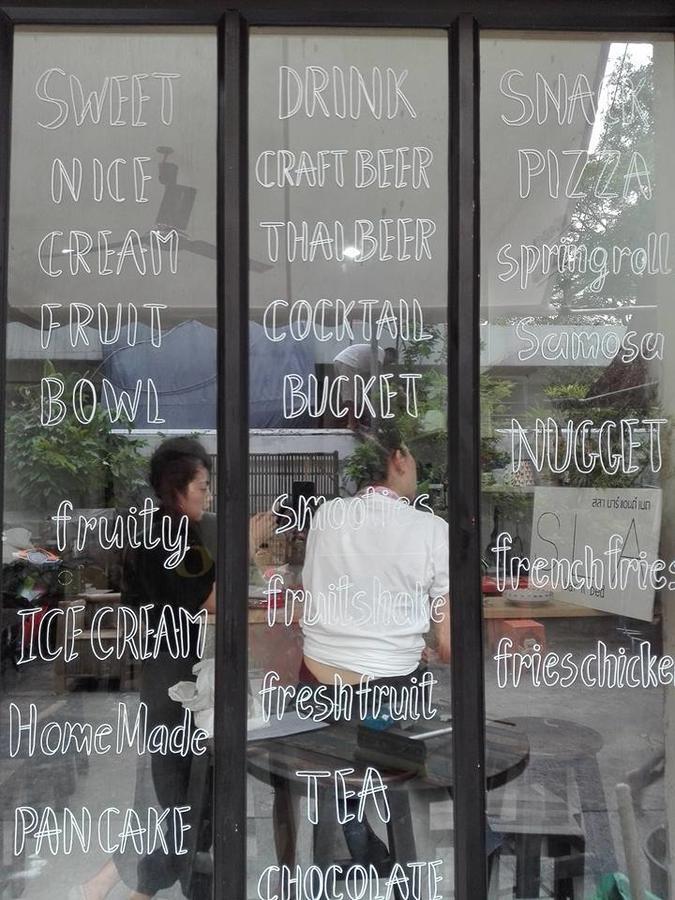 SWEET
NICE
CREAM
FRUIT
BOWL
fruity
ICE CREAM
HomeMade
PANCAKE
DRINK
CRAFT BEER
THAI BEER
COCKTAIL
BUCKET
smooties
fruitshake
freshfruit
TEA
CHOCOLATE
SNACK
PIZZA
springroll
Samosa
NUGGET
frenchfries
frieschicke
สลา บาร์ แอนด์ เบด